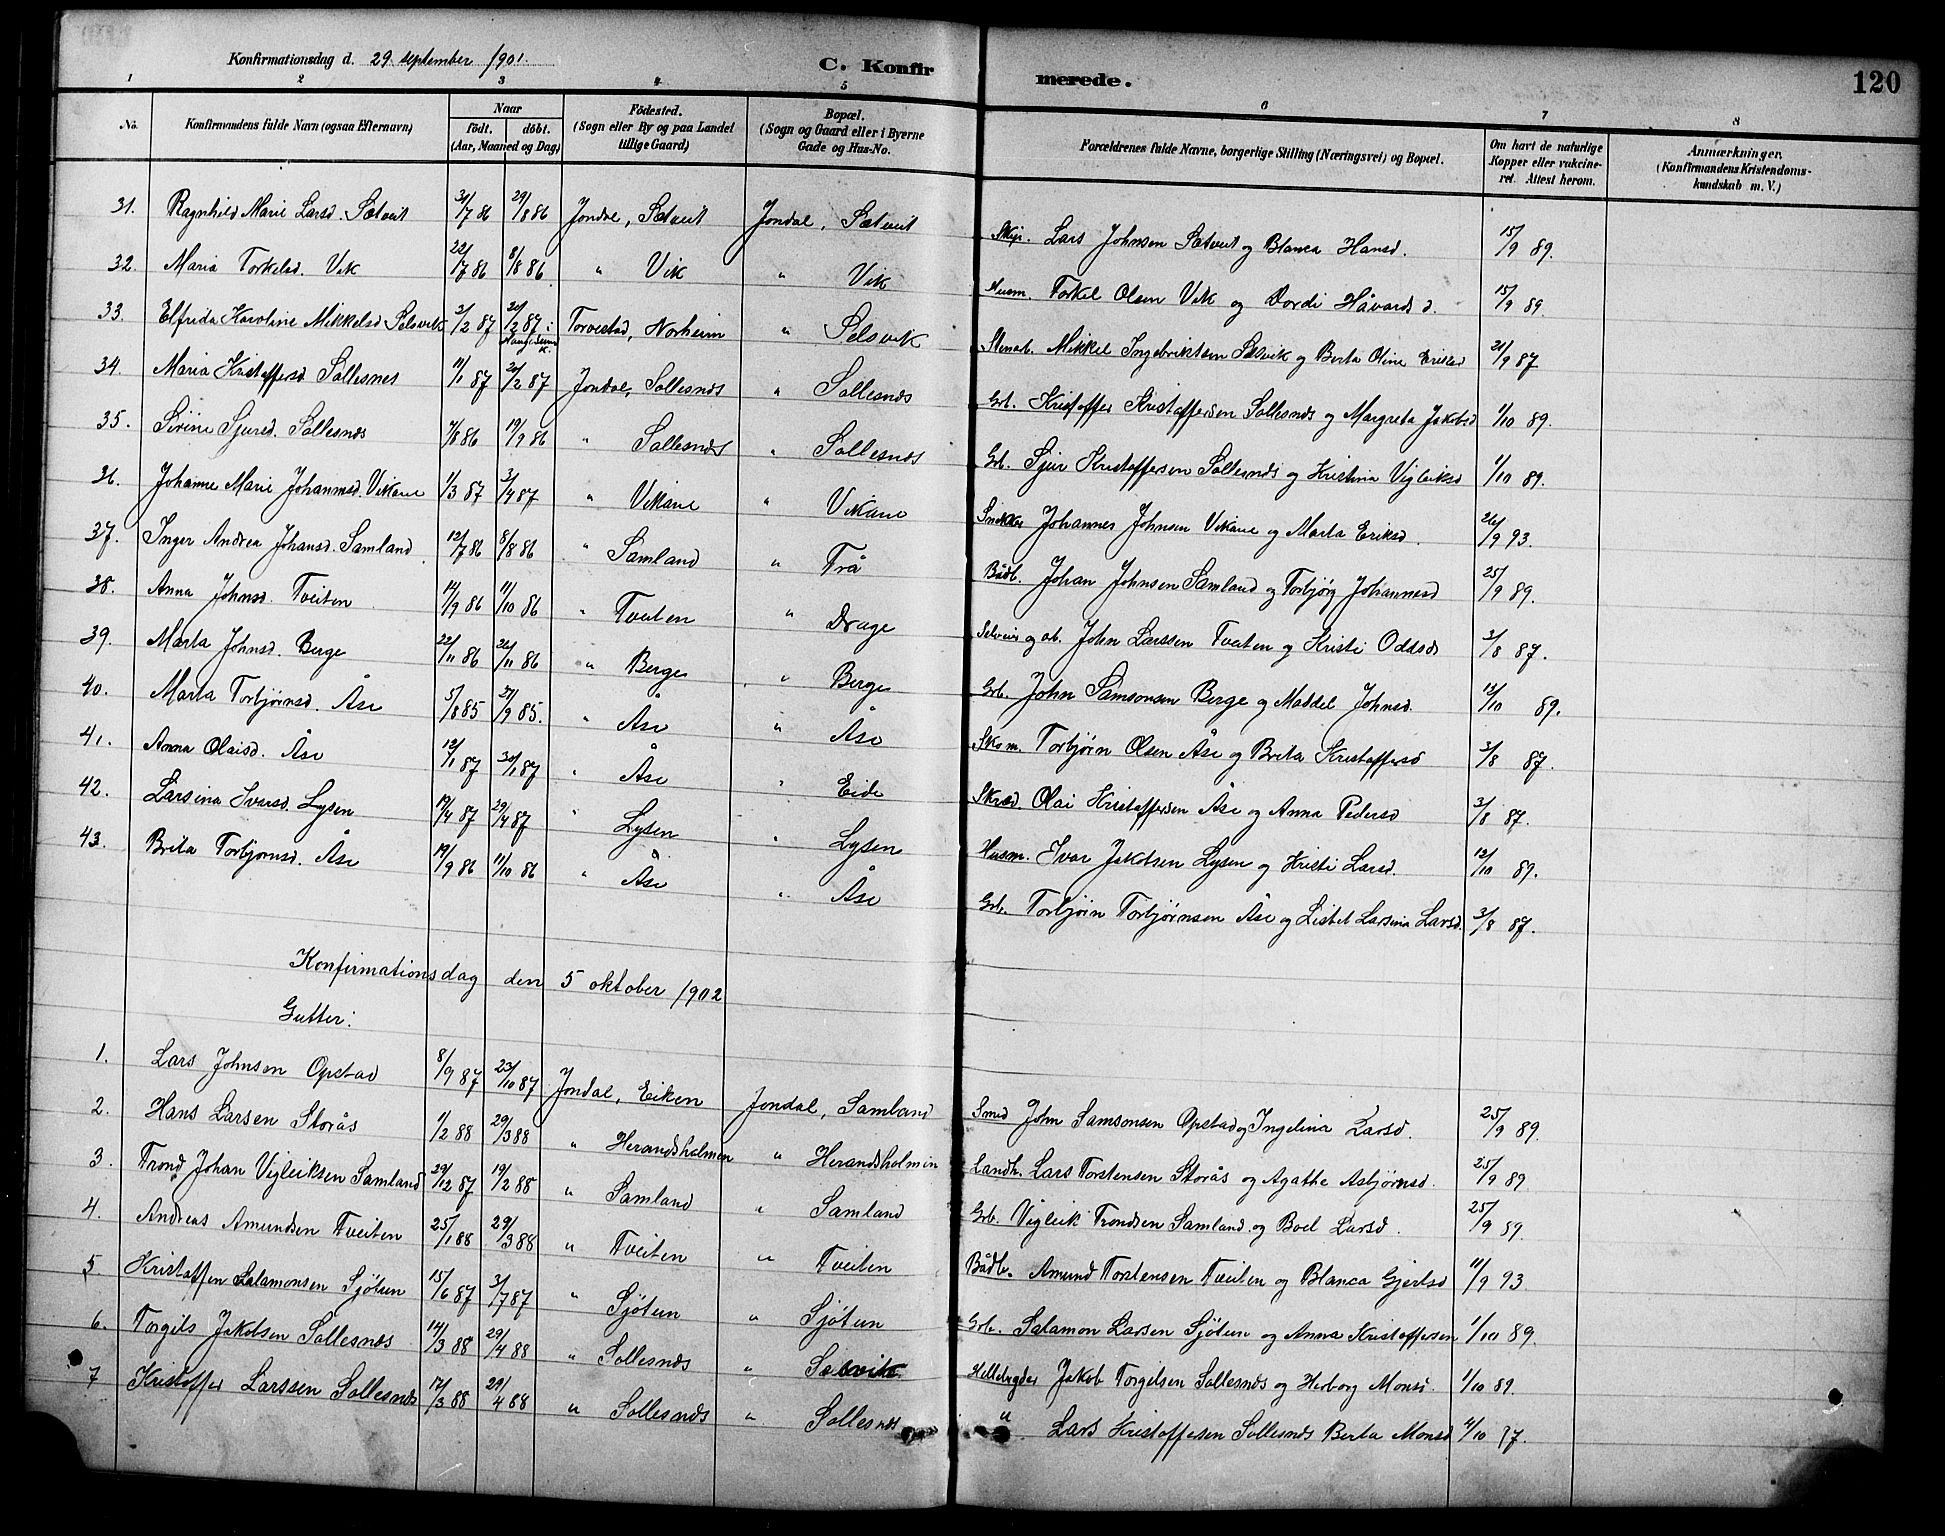 Konfirmationsdag d. 29. september 1901. C. Konfirmerede. 120
1 2 3 4 5 6 7 8
No. Konfirmandens fulde Navn (ogsaa Efternavn) Naar födt. döbt. (Aar, Maaned og Dag) Födested. (Sogn eller By og paa Landet tillige Gaard) Bopæl. (Sogn og Gaard eller i Byerne Gade og Hus-No. Forældrenes fulde Navne, borgerlige Stilling (Næringsvei) og Bopæl. Om havt de naturlige Kopper eller vakcineret. Attest herom. Anmærkninger. (Konfirmandens Kristendomskundskab m. V.)
31. Ragnhild Marie Larsd. Sætveit 31/7 86 29/8 86 Jondal, Sætveit Jondal, Sætveit Lars Johnsen Sætveit og Blanca Hansd. 15/9 89.
32. Maria Torkelsd. Vik 22/7 86 8/8 86 " Vik " Vik Husm. Torkel Olsen Vik og Dordi Håvardsd. 15/9 89.
33. Elfrida Karoline Mikkelsd Selsvik 2/2 87 20/2 87 i Torvestad, Norheim " Selsvik Mikkel Ingebriktsen Selsvik og Berta Oline Eriksd 21/9 87
34. Maria Kristoffersd Sollesnes 11/1 87 20/2 87 Jondal, Sollesnæs " Sollesnæs Grb. Kristoffer Kristoffersen Sollesnæs og Margreta Jakobsd 1/10 89.
35. Sirine Sjursd. Sollesnæs 7/8 86 19/9 86 " Sollesnæs " Sollesnæs Grb. Sjur Kristoffersen Sollesnæs og Kristina Vigleiksd 1/10 89.
36. Johanne Marie Johannesd. Vikane 1/3 87 3/4 87 " Vikane " Vikane Snekker Johannes Johnsen Vikane og Marta Eriksd. 26/9 93.
37. Inger Andrea Johansd. Samland 12/7 86 8/8 86 " Samland " Trå Bådb. Johan Johnsen Samland og Torbjørg Johannesd 25/9 89.
38. Anna Johnsd. Tveiten 14/9 86 11/10 86 " Tveiten " Drage Selveier og ab. John Larssen Tveiten og Kristi Oddsd 3/8 87.
39. Marta Johnsd. Berge 22/11 86 26/11 86 " Berge " Berge Grb. John Samsonsen Berge og Maddel Johnsd. 13/10 89.
40. Marta Torbjørnsd. Åse 5/8 85 27/9 85. " Åse " Åse Skom. Torbjørn Olsen Åse og Brita Kristoffersd 3/8 87.
41. Anna Olaisd. Åse 12/1 87 30/1 87 " Åse " Eide Skræd. Olai Kristoffersen Åse og Anna Pedersd 3/8 87.
42. Larsina Ivarsd. Lysen 17/4 87 29/4 87 " Lysen " Lysen Husm. Ivar Jakobsen Lysen og Kristi Larsd. 12/10 89.
43. Brita Torbjørnsd. Åse 19/9 86 11/10 86 " Åse " Åse Grb. Torbjørn Torbjørnsen Åse og Listel Larsina Larsd. 3/8 87.
Konfirmationsdag den 5 oktober 1902
Gutter:
1. Lars Johnsen Opstad 8/9 87 23/10 87 Jondal, Eiken Jondal, Samland Smed John Samsonsen Opstad og Ingelina Larsd. 25/9 89.
2. Hans Larsen Storås 1/2 88 29/3 88 " Herandsholmen " Herandsholmen Landh. Lars Torstensen Storås og Agathe Asbjørnsd. 25/9 89.
3. Trond Johan Vigleiksen Samland 29/12 87 19/2 88 " Samland " Samland Grb. Vigleik Trondsen Samland og Boel Larsd. 25/9 89.
4. Andreas Amundsen Tveiten 25/1 88 29/3 88 " Tveiten " Tveiten Bådb. Amund Torstensen Tveiten og Blanca Gjertsd 11/9 93.
5. Kristoffen Salamonsen Sjötun 15/6 87 3/7 87 " Sjötun " Sjötun Grb. Salamon Larsen Sjötun og Anna Kristoffersen 1/10 89.
6. Torgils Jakobsen Sollesnæs 14/3 88 29/4 88 " Sollesnæs " Selsvik Hellebryder Jakob Torgilsen Sollesnæs og Herborg Monsd. 1/10 89.
7 Kristoffer Larssen Sollesnæs 17/3 88 29/4 88 " Sollesnæs " Sollesnæs " Lars Kristoffersen Sollesnæs Berta Monsd 4/10 87.